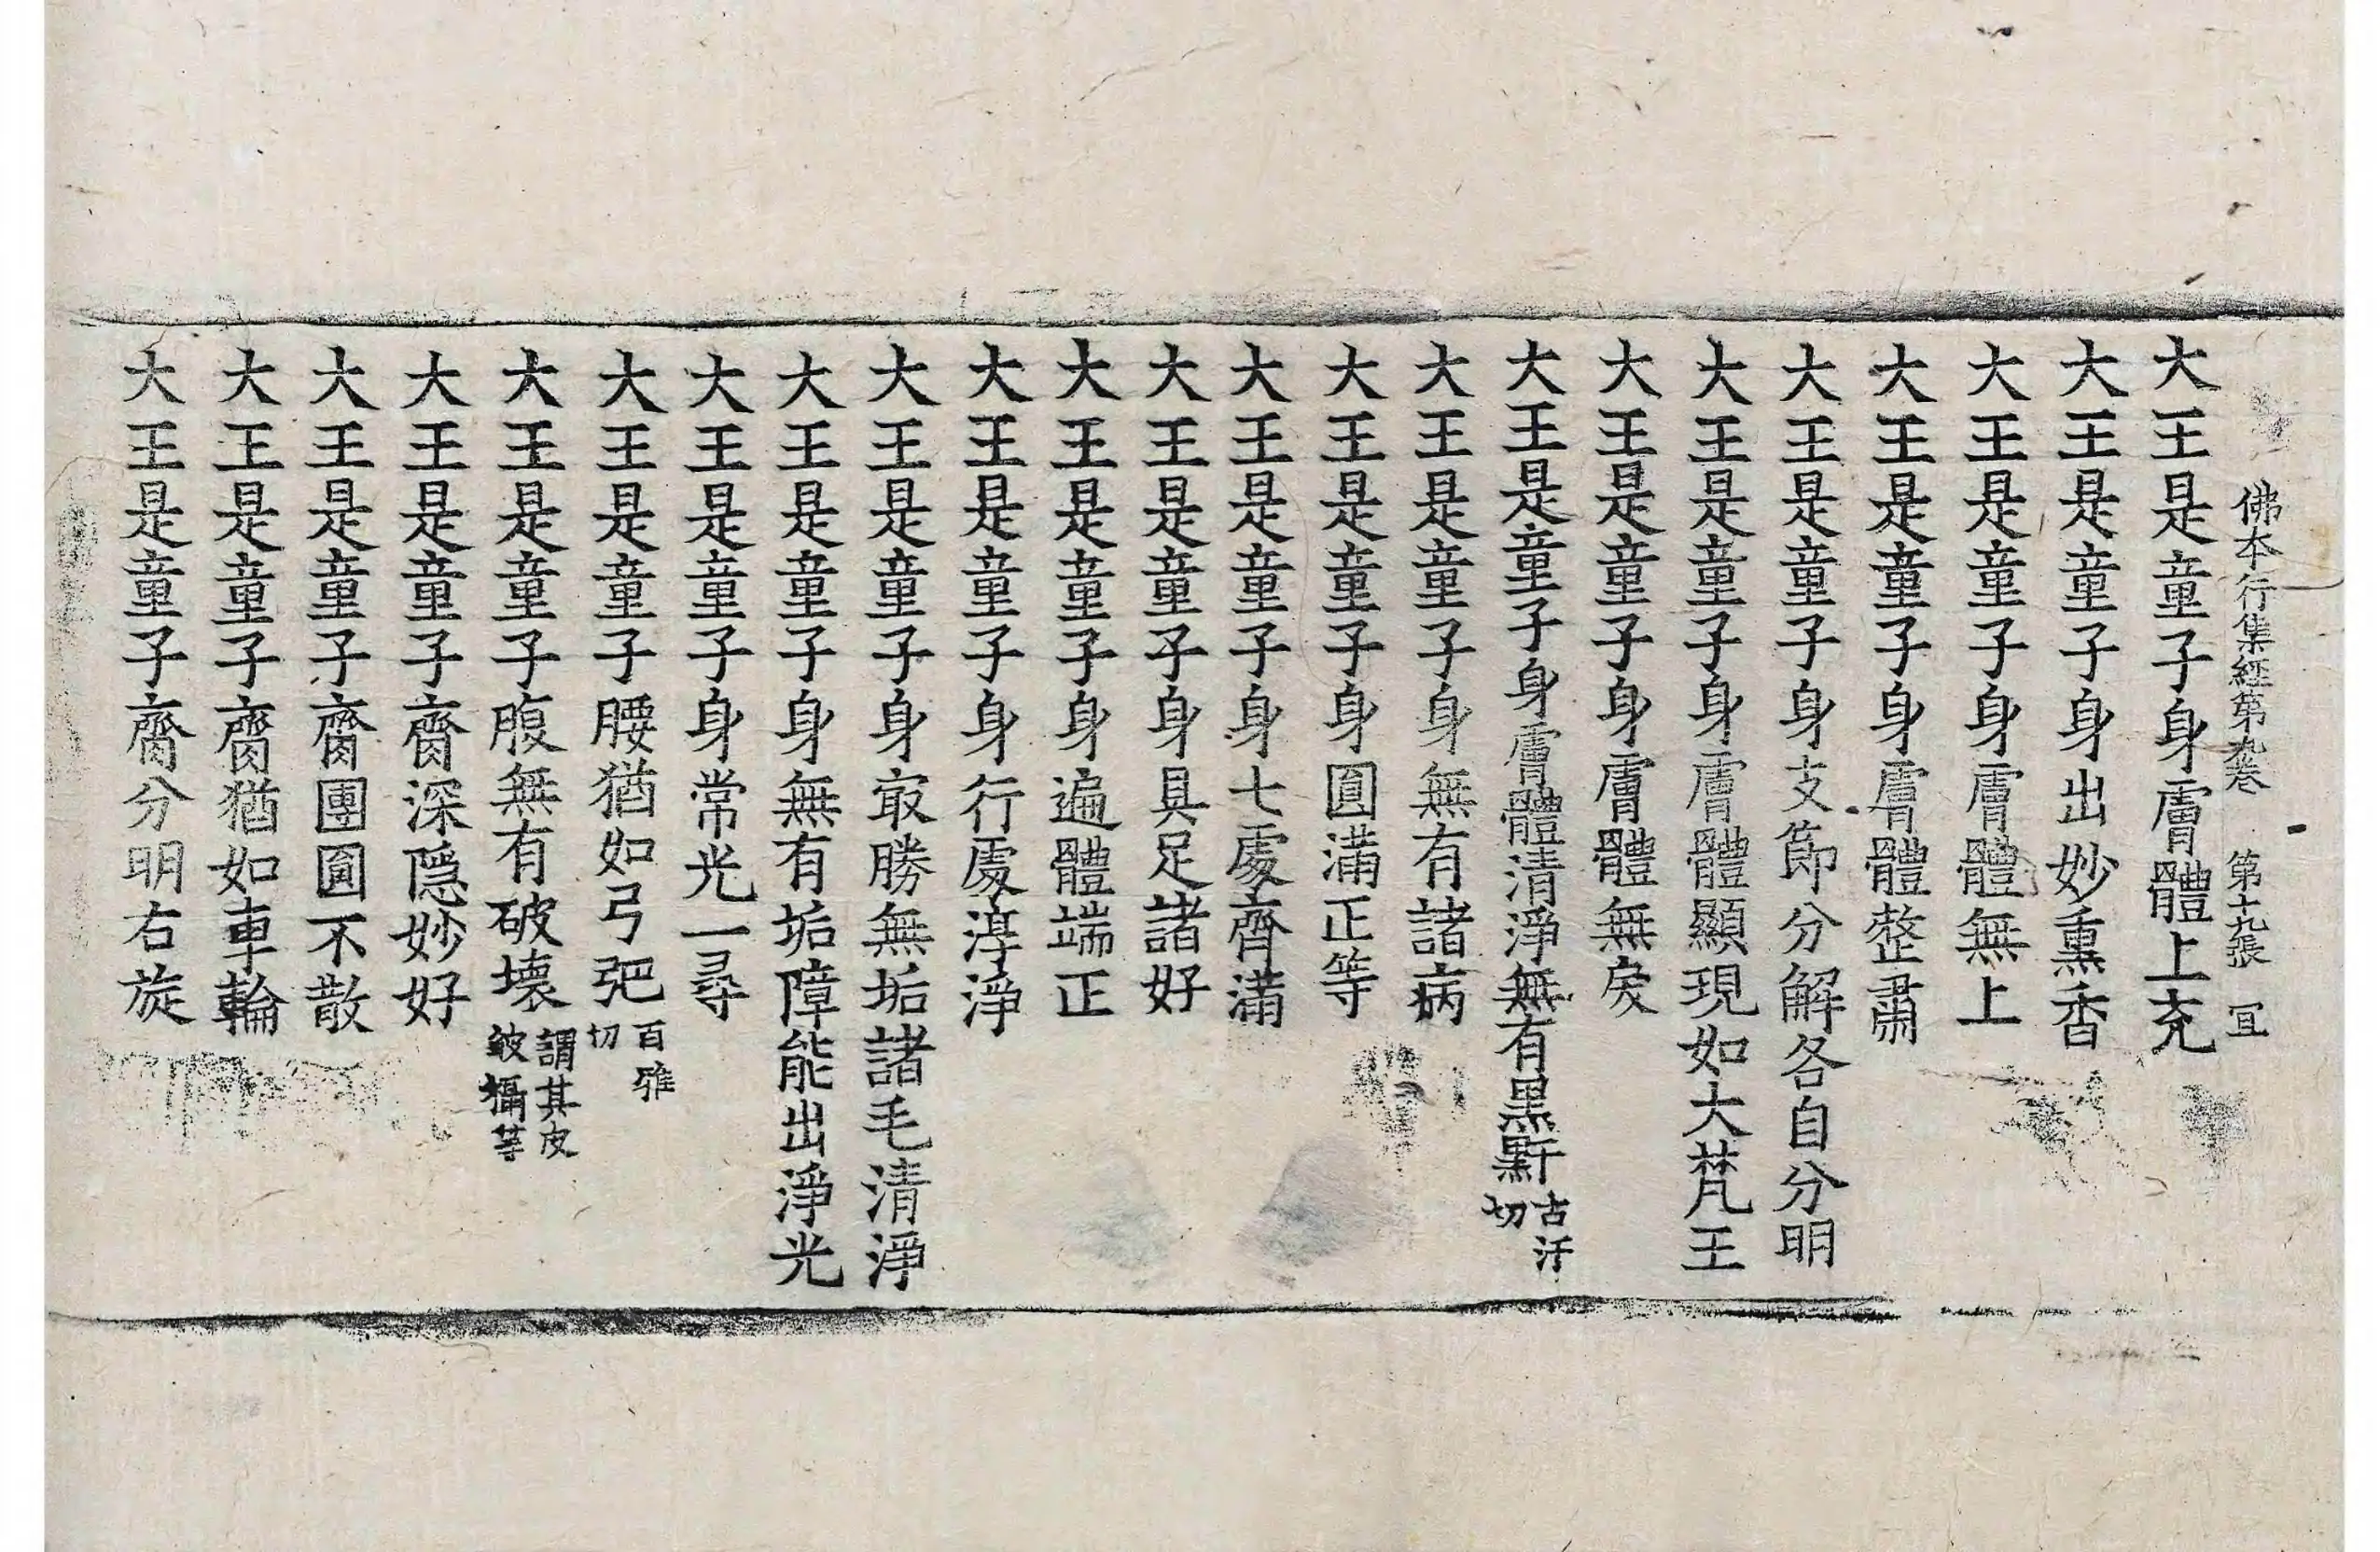 佛本行集經第九卷 第十九張 宜
大王是童子身膚體上充
大王是童子身出妙熏香
大王是童子身膚體無上
大王是童子身膚體整肅
大王是童子身支節分解各自分明
大王是童子身膚體顯現如大梵王
大王是童子身膚體無戾
大王是童子身膚體清淨無有黑䵟古汗切
大王是童子身無有諸病
大王是童子身圓滿正等
大王是童子身七處齊滿
大王是童子身具足諸好
大王是童子身遍體端正
大王是童子身行處淳淨
大王是童子身㝡勝無垢諸毛清淨
大王是童子身無有垢障能出淨光
大王是童子身常光一尋
大王是童子腰猶如弓弝百雅切
大王是童子腹無有破壞謂其皮皴攝等
大王是童子齎深隱妙好
大王是童子齎團圓不散
大王是童子齎猶如車輪
大王是童子齎分明右旋